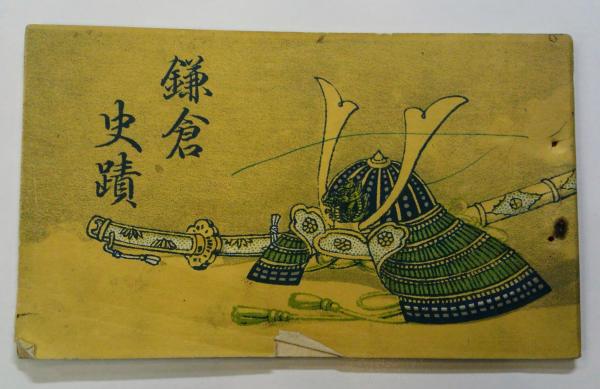 鎌倉
史蹟